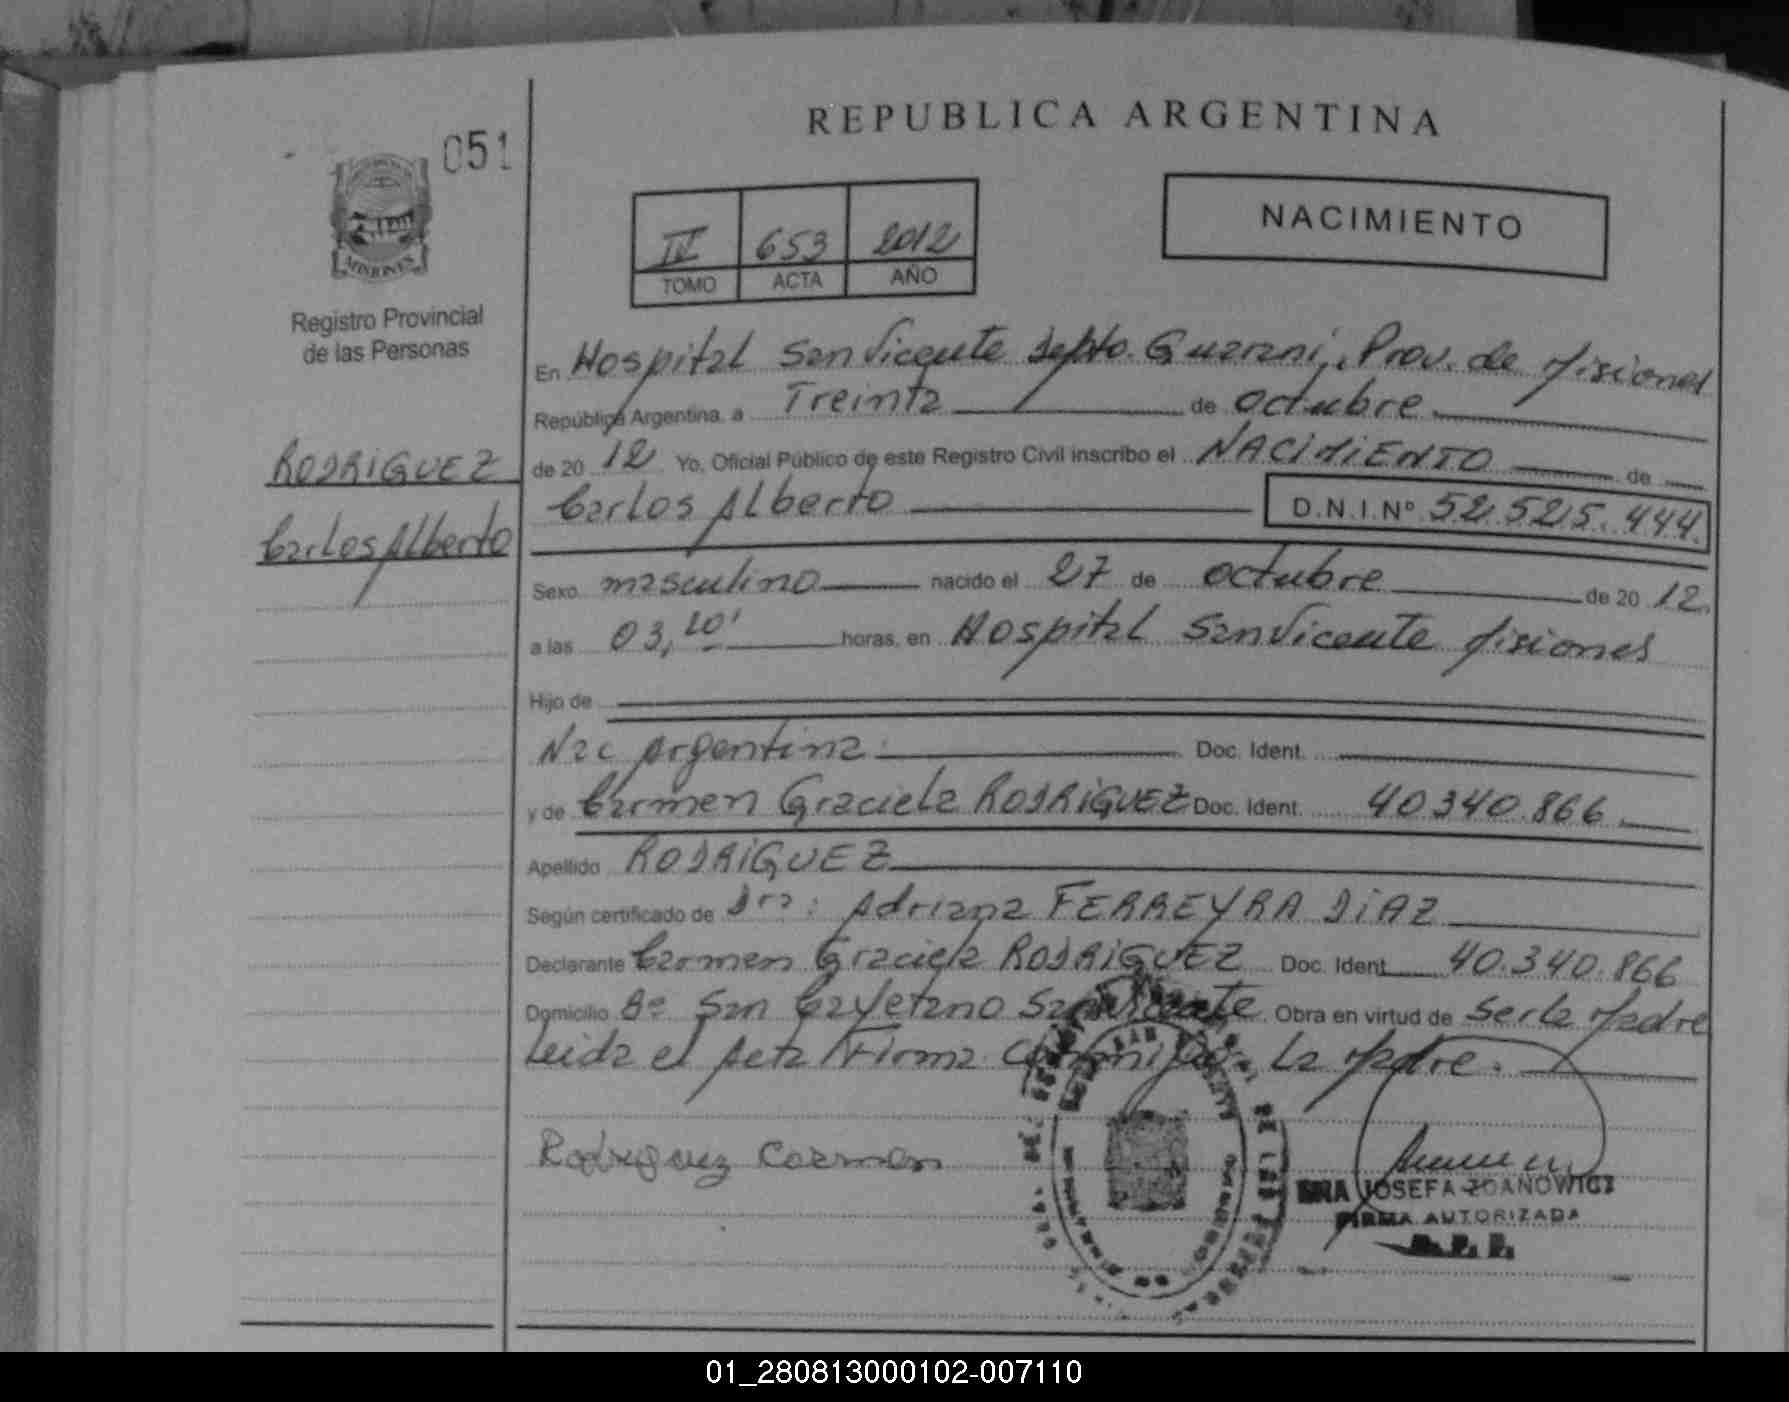 REPUBLICA ARGENTINA
051
NACIMIENTO
IV 653 2012
TOMO ACTA AÑO
MISIONES
Registro Provincial
de las Personas
RODRIGUEZ
Carlos Alberto
En Hospital San Vicente Depto. Guarani, Prov. de Misiones
República Argentina, a Treinta de octubre
de 20 12 Yo, Oficial Público de este Registro Civil inscribo el NACIMIENTO de
Carlos Alberto D.N.I.Nº 52.525.444.
Sexo masculino nacido el 27 de octubre de 20 12.
a las 03,20' horas, en Hospital San Vicente Misiones
Hijo de
Nac Argentina. Doc. Ident.
y de Carmen Graciela RODRIGUEZ Doc. Ident. 40340.866
Apellido RODRIGUEZ
Según certificado de Dra: Adriana FERREYRA DIAZ
Declarante Carmen Graciela RODRIGUEZ Doc. Ident. 40.340.866
Domicilio Bº San Cayetano San Vicente Obra en virtud de ser la Madre
Leida el Acta Firma Conmigo La Madre.
Rodriguez Carmen
JOSEFA ZDANOWICZ
FIRMA AUTORIZADA
01_280813000102-007110